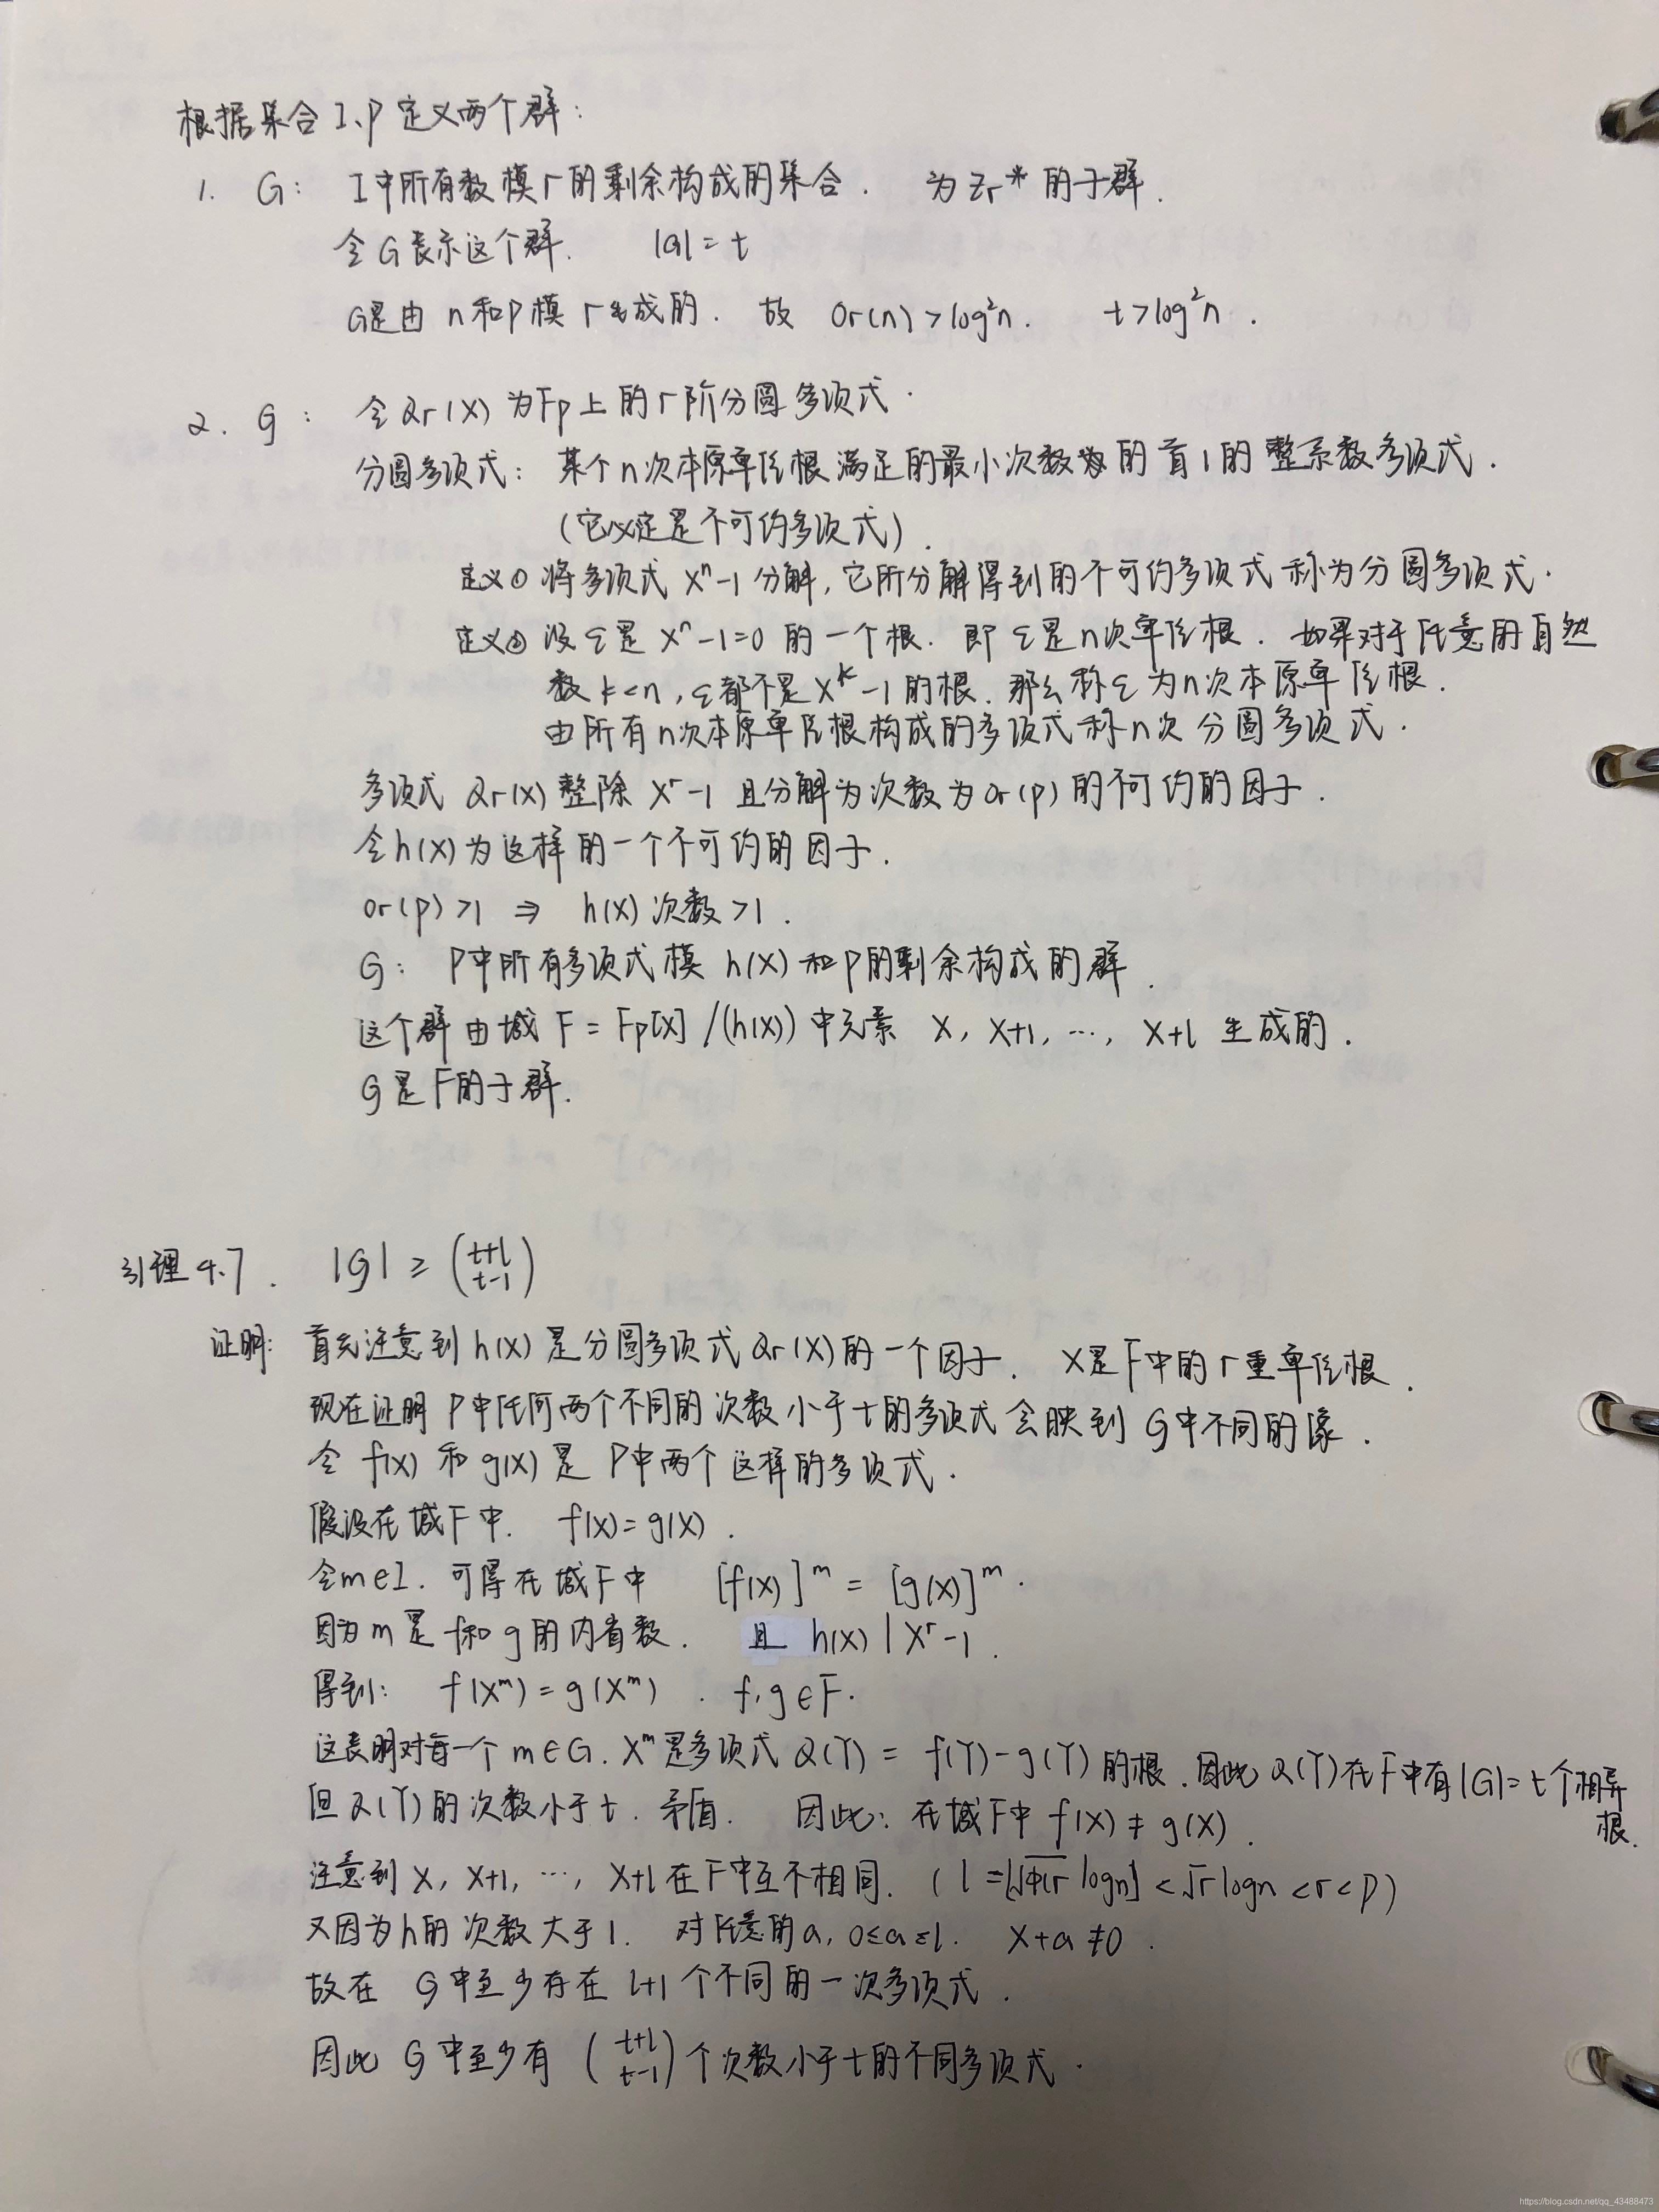 根据集合 I、P 定义两个群：
1. G： I中所有数模 r 的剩余构成的集合． 为 Zr* 的子群．
令 G 表示这个群． |G| = t
G是由 n 和 p 模 r 生成的． 故 Or(n) > log²n． t > log²n ．
2. G ： 令 Qr(X) 为 Fp 上的 r 阶分圆多项式．
分圆多项式： 某个 n 次本原单位根满足的最小次数的首 1 的整系数多项式．
（它必定是不可约多项式）．
定义① 将多项式 Xⁿ-1 分解，它所分解得到的不可约多项式称为分圆多项式．
定义② 设 ε 是 Xⁿ-1=0 的一个根． 即 ε 是 n 次单位根． 如果对于任意的自然
数 k<n，ε都不是 Xᵏ-1 的根．那么称 ε 为 n 次本原单位根．
由所有 n 次本原单位根构成的多项式称 n 次分圆多项式．
多项式 Qr(X) 整除 Xʳ-1 且分解为次数为 Or(p) 的不可约的因子．
令 h(X) 为这样的一个不可约的因子．
Or(p) >1 ⇒ h(X) 次数 >1．
G： P中所有多项式模 h(X) 和 p 的剩余构成的群．
这个群由域 F = Fp[X] /(h(X)) 中元素 X, X+1, …, X+l 生成的．
G 是 F 的子群．
引理 4.7． |G| ≥ (t+l t-1)
证明： 首先注意到 h(X) 是分圆多项式 Qr(X) 的一个因子． X 是 F 中的 r 重单位根．
现在证明 P 中任何两个不同的次数小于 t 的多项式会映到 G 中不同的像．
令 f(X) 和 g(X) 是 P 中两个这样的多项式．
假设在域 F 中． f(X) = g(X) ．
令 m∈I．可得在域 F 中 [f(X)]ᵐ = [g(X)]ᵐ．
因为 m 是 f 和 g 的内省数． 且 h(X) | Xʳ-1 ．
得到： f(Xᵐ) = g(Xᵐ) ． f,g∈F．
这表明对每一个 m∈G．Xᵐ 是多项式 Q(Y) = f(Y)-g(Y) 的根．因此 Q(Y) 在 F 中有 |G| = t 个相异
根．
但 Q(Y) 的次数小于 t．矛盾． 因此：在域 F 中 f(X) ≠ g(X) ．
注意到 X, X+1, …, X+l 在 F 中互不相同． ( l =⌊√Φ(r logn⌋ < √r logn < r < p )
又因为 h 的次数大于 1． 对任意的 a，0≤a≤l． X+a ≠0 ．
故在 G 中至少存在 l+1 个不同的一次多项式．
因此 G 中至少有 (t+l t-1) 个次数小于 t 的不同多项式．
https://blog.csdn.net/qq_43488473